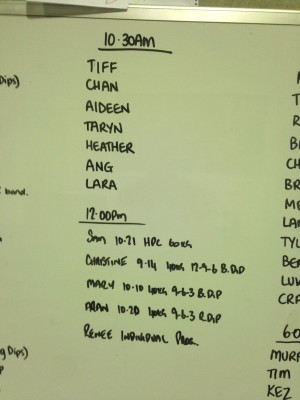 10:30AM
TIFF
CHAN
AIDEEN
TARYN
HEATHER
ANG
LARA
12:00pm
SAM 10:21 HPC 60KG
CHRISTINE 9:14 40KG 12-9-6 B.DIP
MARY 10:10 40KG 9-6-3 B.DIP
10:20 40KG 9-6-3 R.DIP
RENEE INDIVIDUAL PROG.
Dips)
band.
g Dips)
P
T
R
B
CH
BR
ME
LA
TYL
BE
LUK
CRA
6:0
MURP
TIM
KEZ